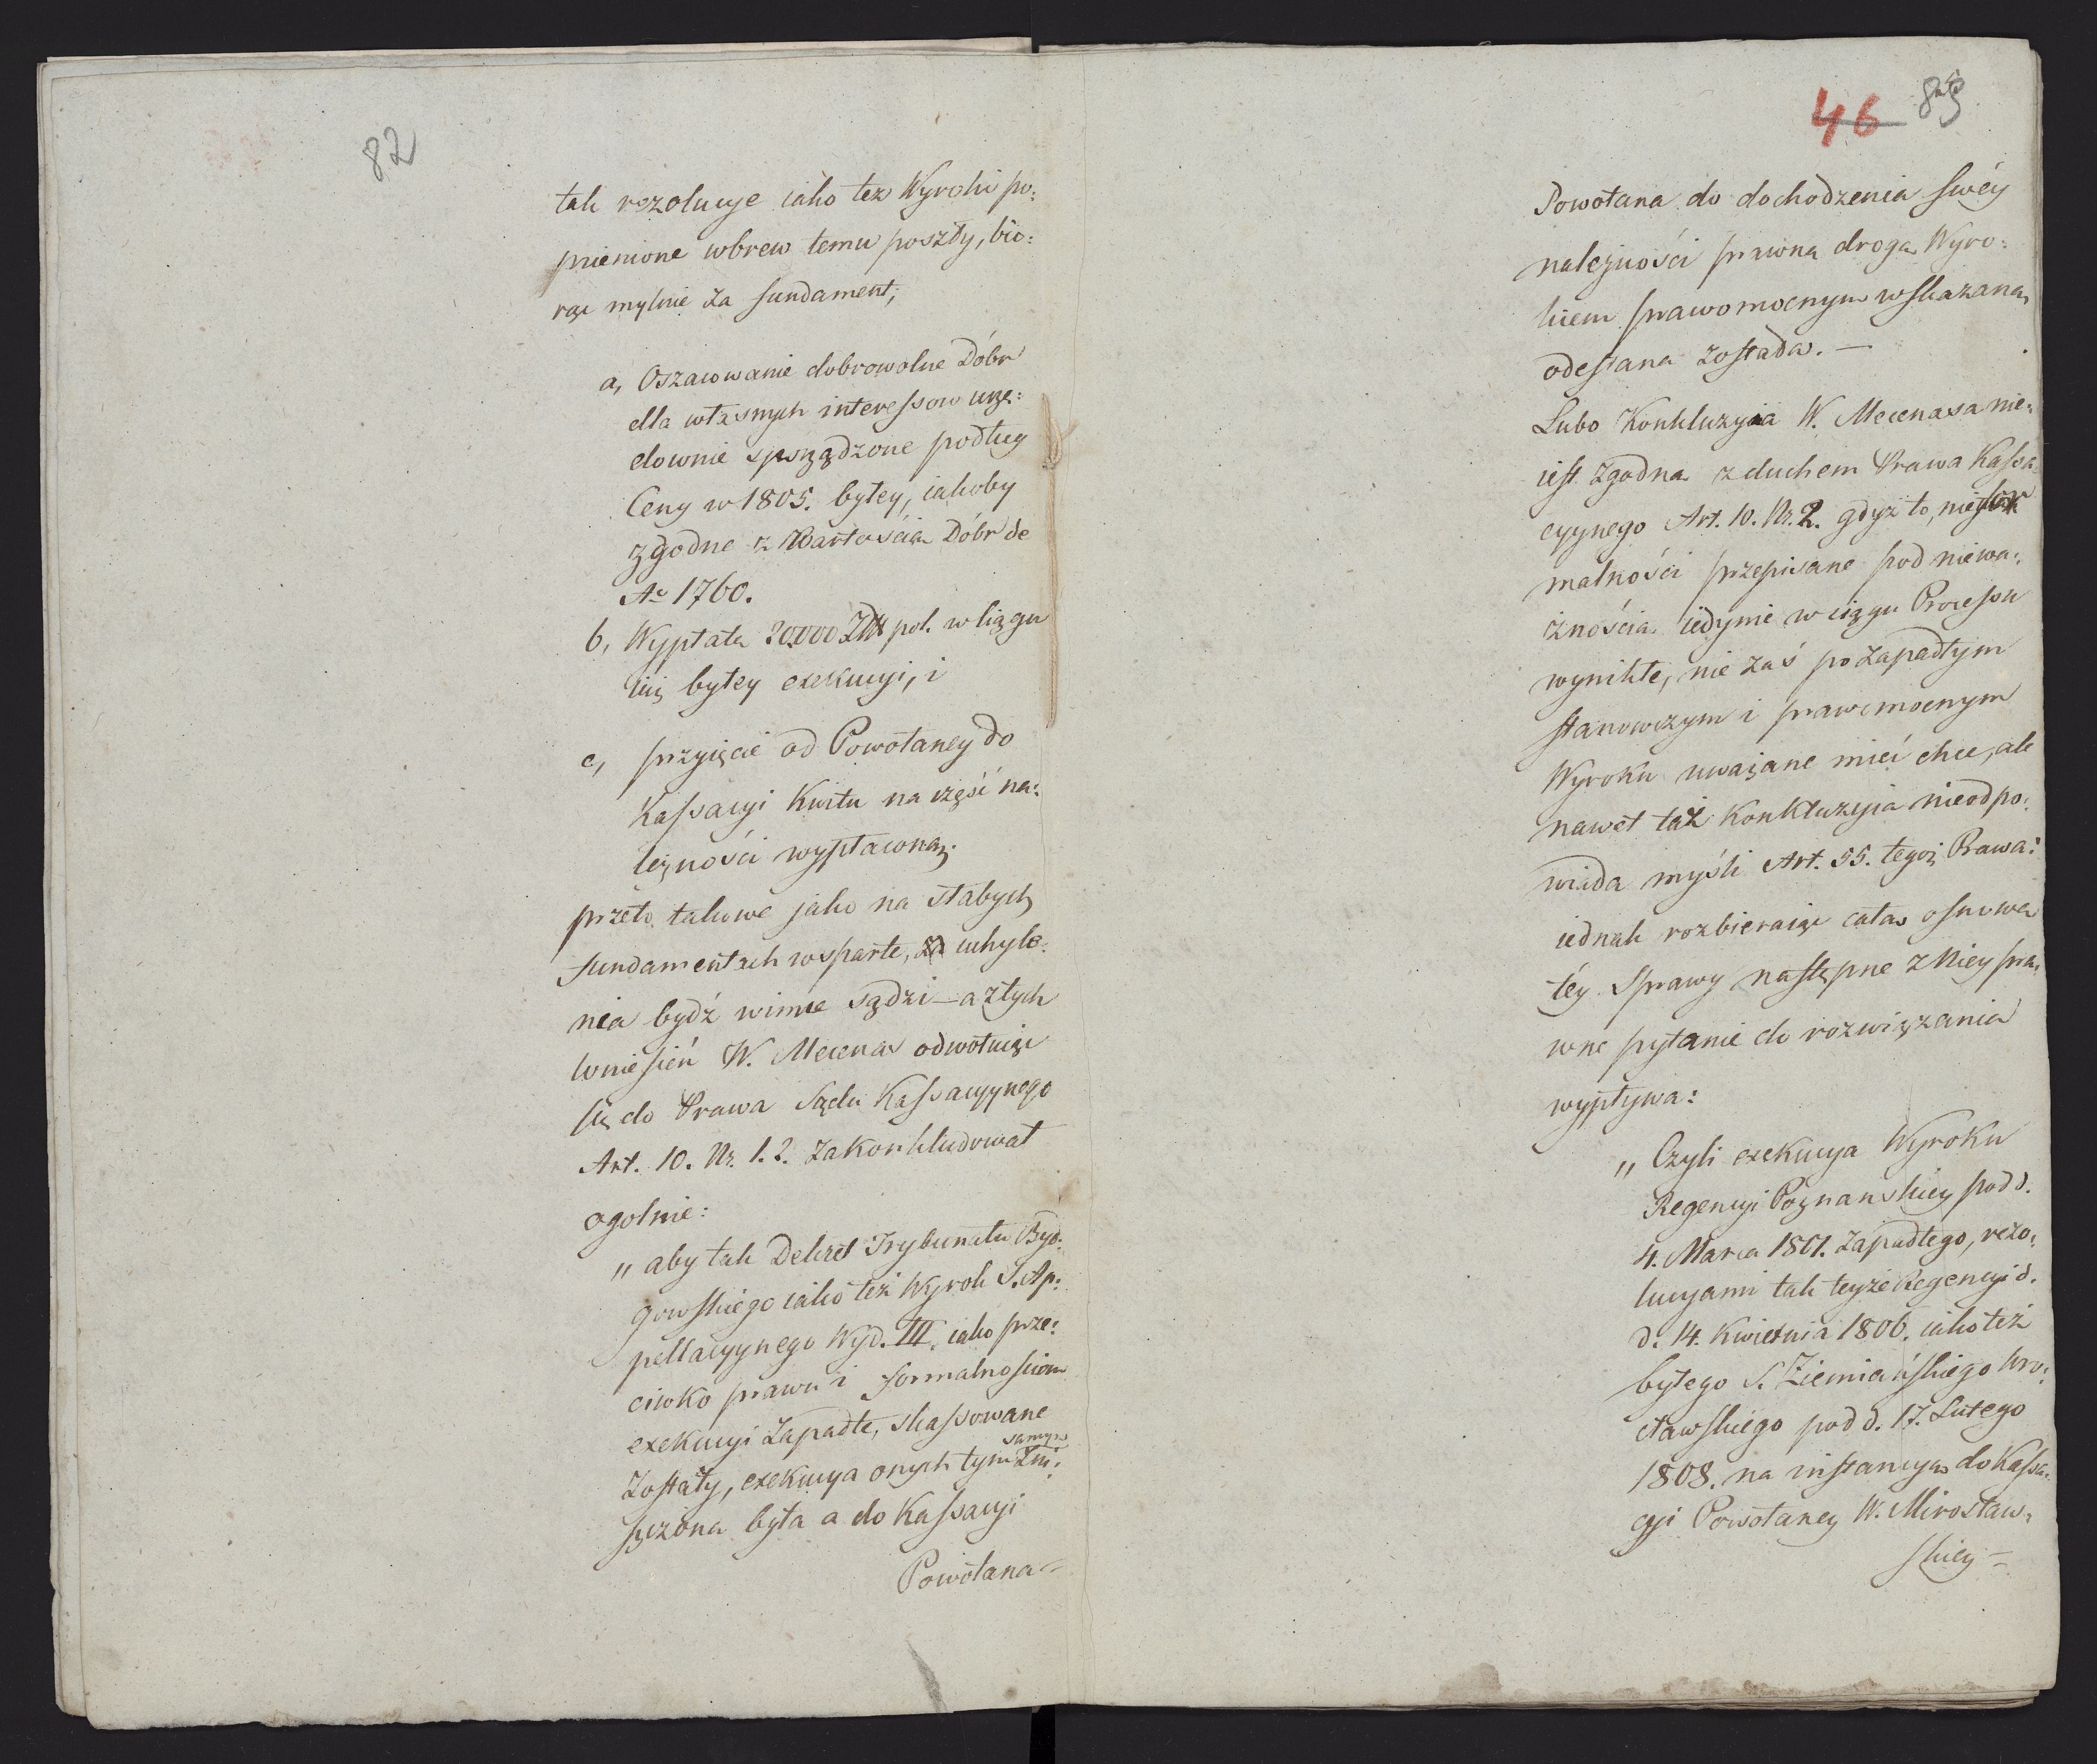 82
tak rezolucye iako też Wyroki po:
mienione wbrew temu poszły, bio:
rąc mylnie za fundament;
a, Oszacowanie dobrowolne Dóbr
dla własnych interessow urzę:
downie sporządzone podług
Ceny w 1805. byłey, iakoby
zgodne z Wartością Dóbr de
Ao 1760.
b, Wypłatę 20.000 Złł pol. w ciągu
iuż byłey exekucyi, i
c, przyięcie od Powołaney do
Kassacyi Kwitu na część na:
leżności wypłaconą;
przeto takowe jako na słabych
fundamentach wsparte, uchyle:
nia bydź winne sądzi – a z tych
wniesień W. Mecenas odwołuiąc
się do Prawa Sądu Kassacyynego
Art. 10. Nr. 1. 2. zakonkludował
ogolnie:
„ aby tak Dekret Trybunału Byd:
gowskiego iako też Wyrok S. Ap:
pellacyynego Wyd. III. iako prze:
ciwko prawu i formalnościom
exekucyi zapadłe, skassowane
samym
zostały, exekucya onych tym zni:
szczona była a do Kassacyi
Powołana =
46 83
Powołana do dochodzenia swéy
należności prawną drogą Wyro:
kiem prawomocnym wskazaną,
odesłana została. —
Lubo Konkluzyia W. Mecenasa nie:
iest zgodna z duchem Prawa Kassa:
cyynego Art. 10. Nr. 2. gdyż to, nie for
malności przepisane pod niewa:
żnością iedynie w ciągu Processu
wynikłe, nie zaś po zapadłym
stanowczym i prawomocnym
Wyroku uważane mieć chce, ale
nawet taż Konkluzyia nieodpo:
wiada myśli Art. 55. tegoż Prawa:
iednak rozbieraiąc całą osnowę
téy Sprawy następne z Niey pra:
wne pytanie do rozwiązania
wypływa:
„ Czyli exekucya Wyroku
Regencyi Poznanskiey pod d.
4. Marca 1801. zapadłego, rezo:
lucyami tak teyże Regencyi d.
d. 14. Kwietnia 1806. iako też
byłego S. Ziemiańskiego Wro:
cławskiego pod d. 17. Lutego
1808. na instancyą do Kassa:
cyi Powołaney W. Mirosław:
skiey =